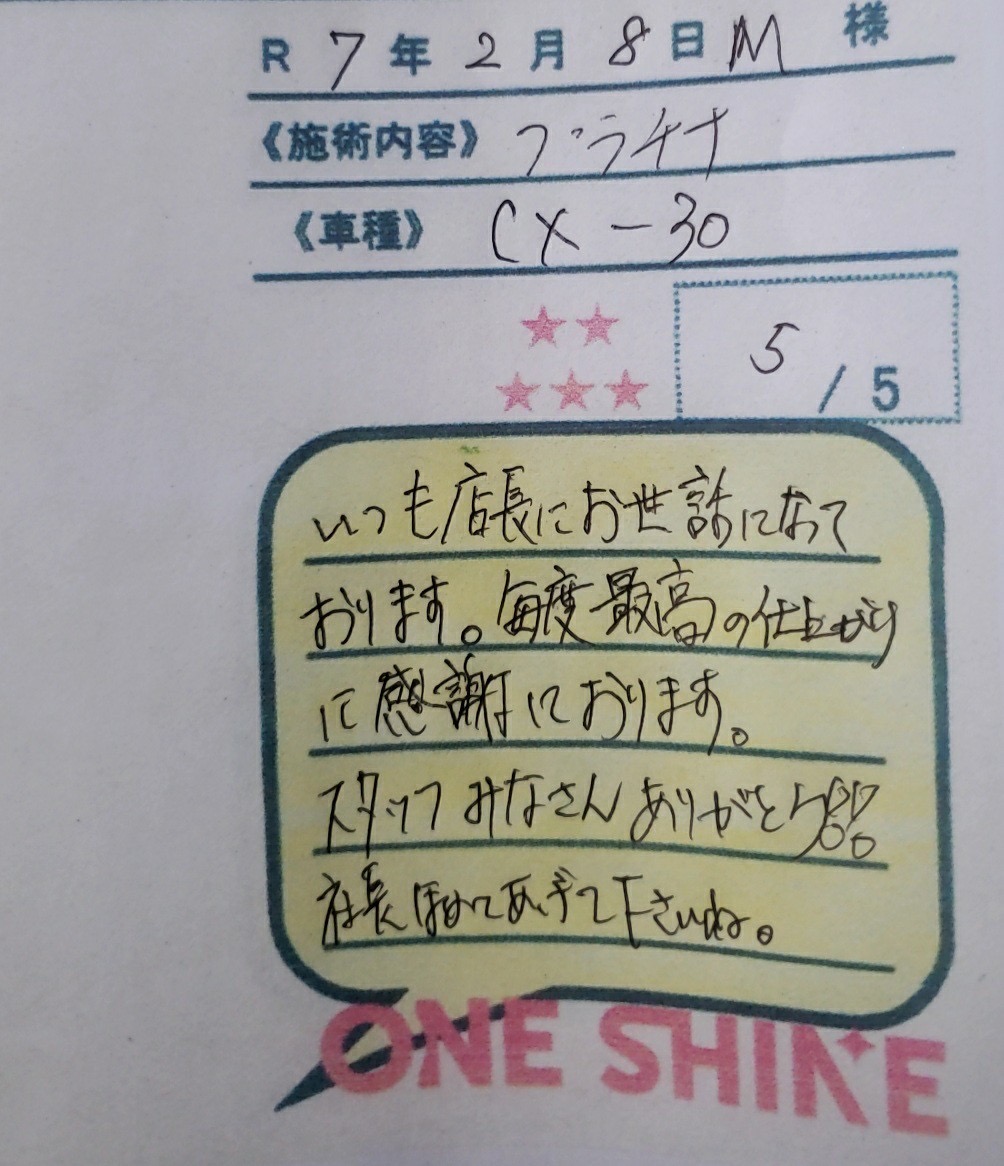 R 7年2月8日 M 様
《施術内容》 プラチナ
《車種》 CX-30
5/5
いつも店長にお世話になって
おります。毎度最高の仕上がり
に感謝しております。
スタッフみなさんありがとう!!
社長ほめてあげて下さいね。
ONE SHINE